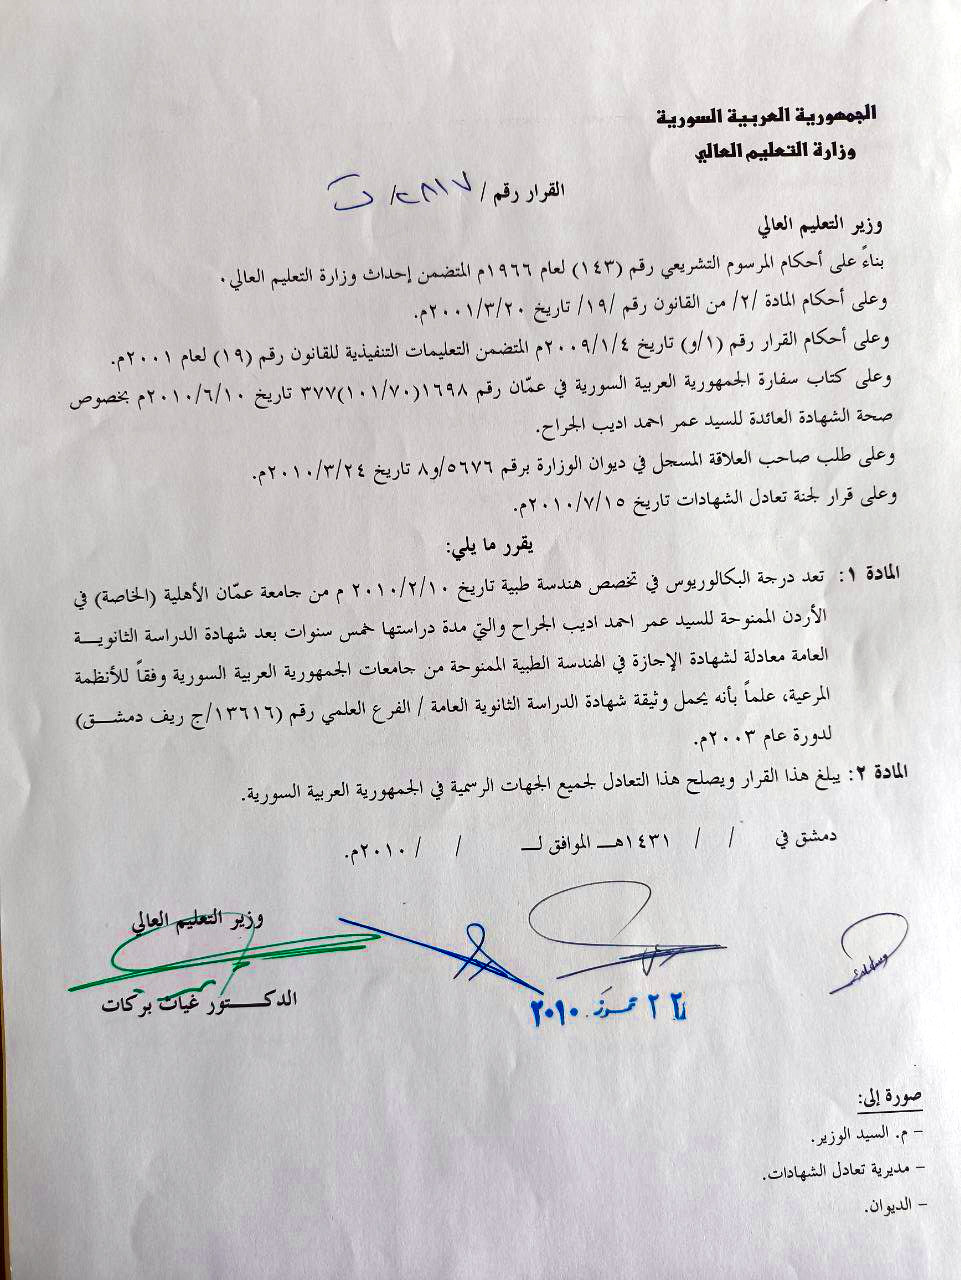 الجمهورية العربية السورية
وزارة التعليم العالي
القرار رقم /٢٨١٧/ ت
وزير التعليم العالي
بناءً على أحكام المرسوم التشريعي رقم (١٤٣) لعام ١٩٦٦م المتضمن إحداث وزارة التعليم العالي.
وعلى أحكام المادة /٢/ من القانون رقم /١٩/ تاريخ ٢٠٠١/٣/٢٠م.
وعلى أحكام القرار رقم (١/و) تاريخ ٢٠٠٩/١/٤م المتضمن التعليمات التنفيذية للقانون رقم (١٩) لعام ٢٠٠١م.
وعلى كتاب سفارة الجمهورية العربية السورية في عمّان رقم ١٦٩٨(١٠١/٧٠)٣٧٧ تاريخ ٢٠١٠/٦/١٠م بخصوص
صحة الشهادة العائدة للسيد عمر احمد اديب الجراح.
وعلى طلب صاحب العلاقة المسجل في ديوان الوزارة برقم ٥٦٧٦/و٨ تاريخ ٢٠١٠/٣/٢٤م.
وعلى قرار لجنة تعادل الشهادات تاريخ ٢٠١٠/٧/١٥م.
يقرر ما يلي:
المادة ١: تعد درجة البكالوريوس في تخصص هندسة طبية تاريخ ٢٠١٠/٢/١٠ م من جامعة عمّان الأهلية (الخاصة) في
الأردن الممنوحة للسيد عمر احمد اديب الجراح والتي مدة دراستها خمس سنوات بعد شهادة الدراسة الثانويـــة
العامة معادلة لشهادة الإجازة في الهندسة الطبية الممنوحة من جامعات الجمهورية العربية السورية وفقاً للأنظمة
المرعية، علماً بأنه يحمل وثيقة شهادة الدراسة الثانوية العامة / الفرع العلمي رقم (١٣٦١٦/ج ريف دمشـــق)
لدورة عام ٢٠٠٣م.
المادة ٢: يبلغ هذا القرار ويصلح هذا التعادل لجميع الجهات الرسمية في الجمهورية العربية السورية.
دمشق في / / ١٤٣١هـــ الموافق لـــ / / ٢٠١٠م.
وزير التعليم العالي
الدكـــتور غياث بركات
٢٢ تموز ٢٠١٠
صورة إلى:
– م. السيد الوزير.
– مديرية تعادل الشهادات.
– الديوان.